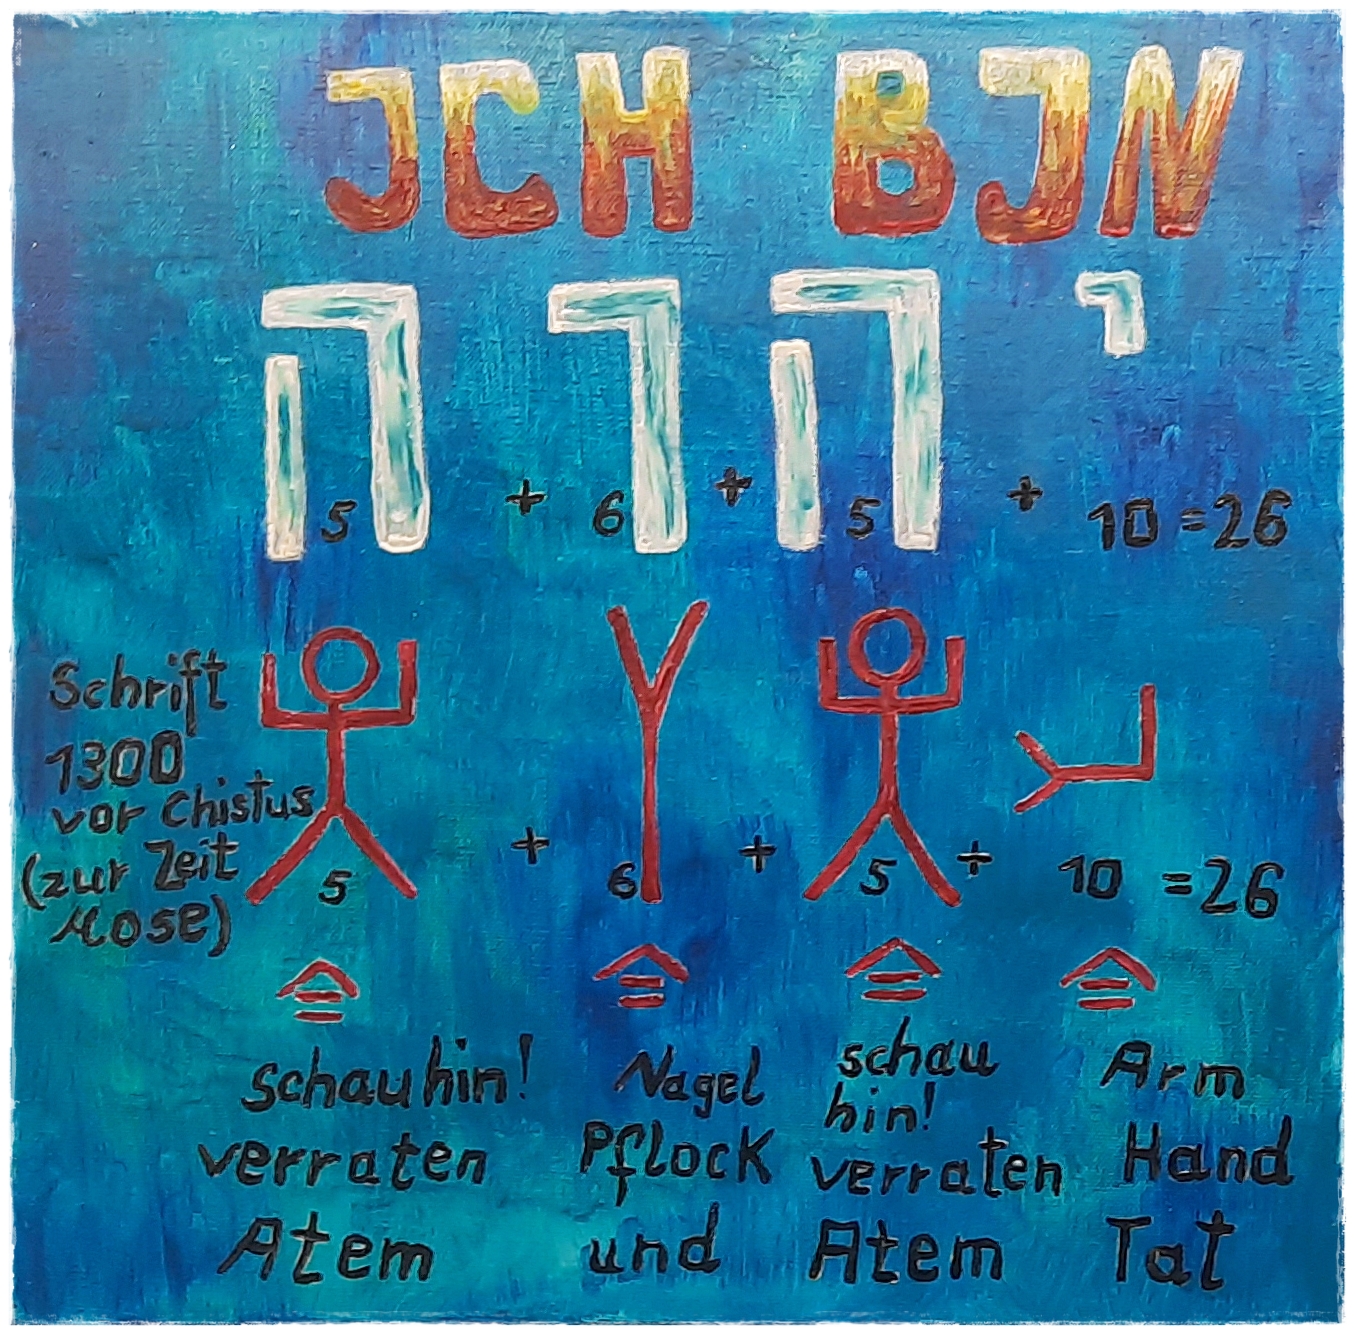 JCH BJN
יהוה
5 + 6 + 5 + 10 = 26
Schrift
1300
vor Chistus
(zur Zeit
Mose)
5 + 6 + 5 + 10 = 26
Schau hin!
verraten
Atem
Nagel
Pflock
und
schau
hin!
verraten
Atem
Arm
Hand
Tat